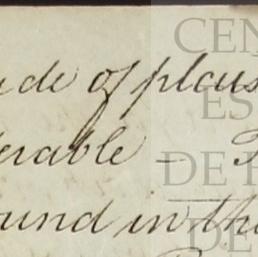 ude of plaus
erable –
ound in the
CEN
ES
DE
DE